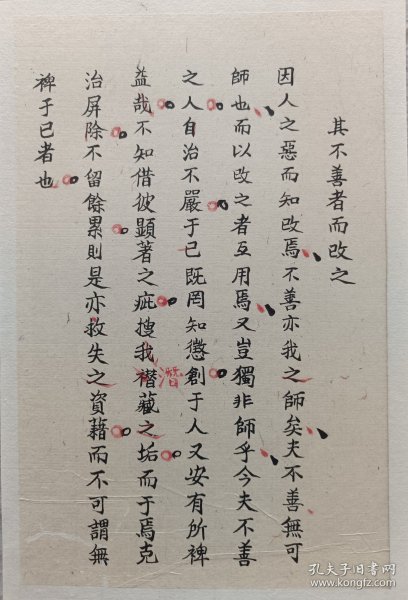 其不善者而改之
因人之惡而知改焉不善亦我之師矣夫不善無可
師也而以改之者互用焉又豈獨非師乎今夫不善
之人自治不嚴于己既罔知懲創于人又安有所裨
益哉不知借彼顯著之疵搜我潛藏之垢而于焉克
治屏除不留餘累則是亦救失之資藉而不可謂無
裨于己者也
潛
孔夫子旧书网
www.kongfz.com